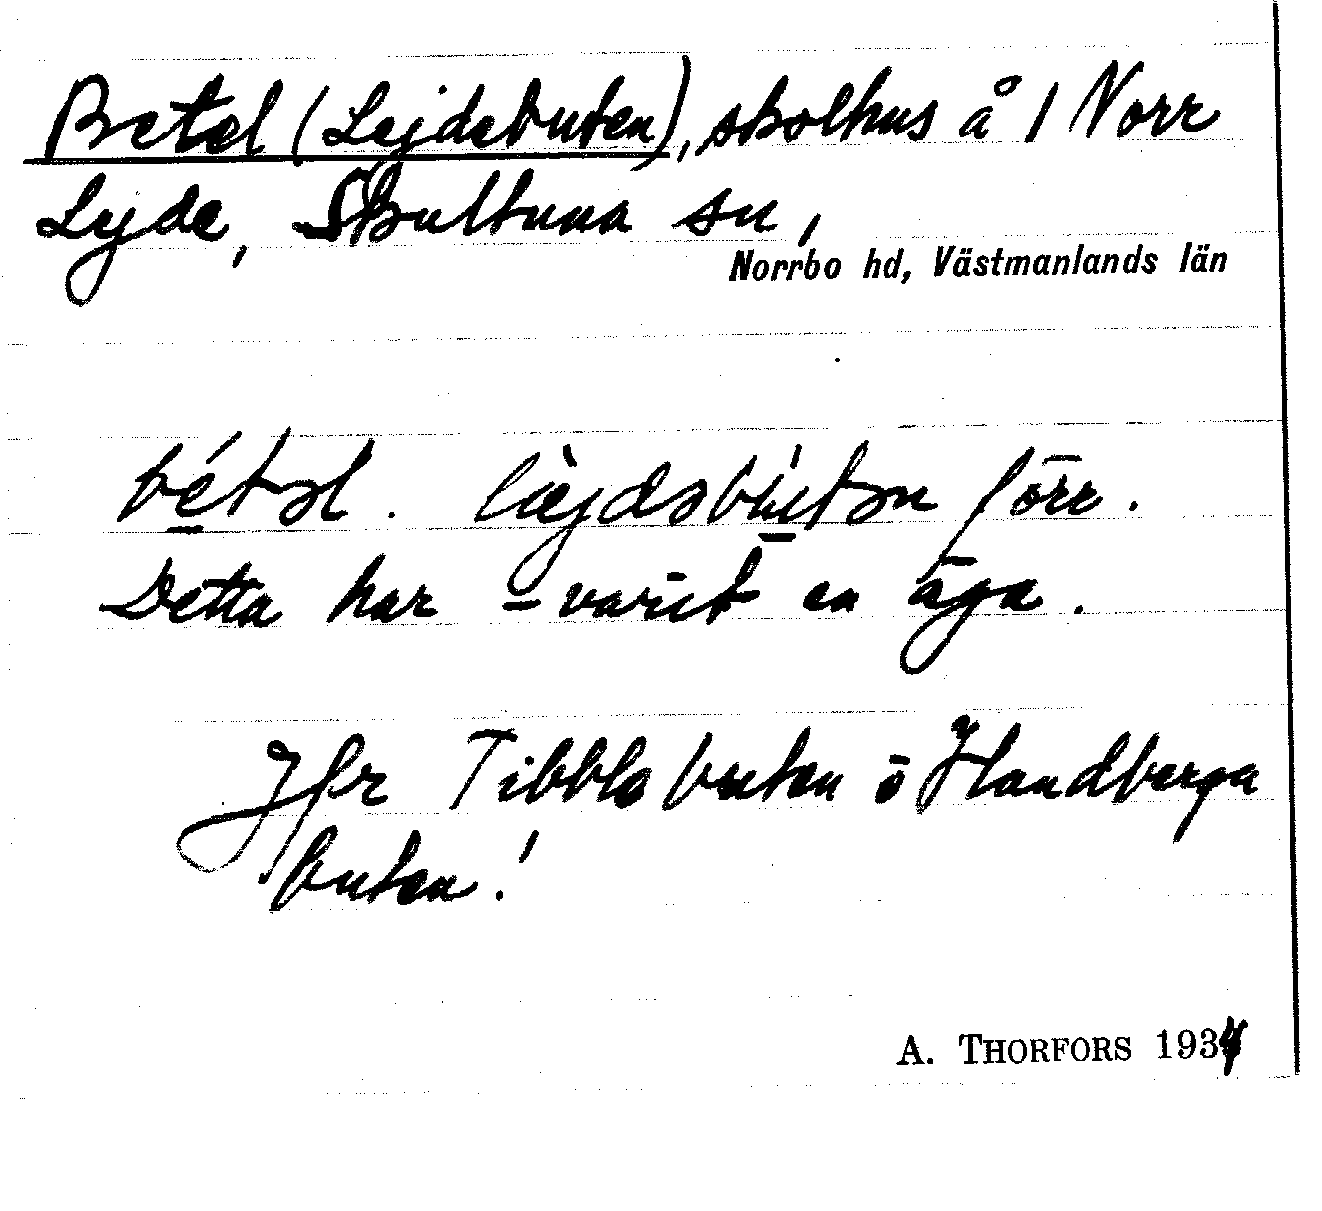 Betel (Lejdebuten), skolhus å 1 Norr
Lejde, Skultuna sn,
Norrbo hd, Västmanlands län
bétəl. læ̀jdəbútən förr.
Detta har varit en äga.
Jfr Tibblebuten o Handberga
buten!
A. THORFORS 1934